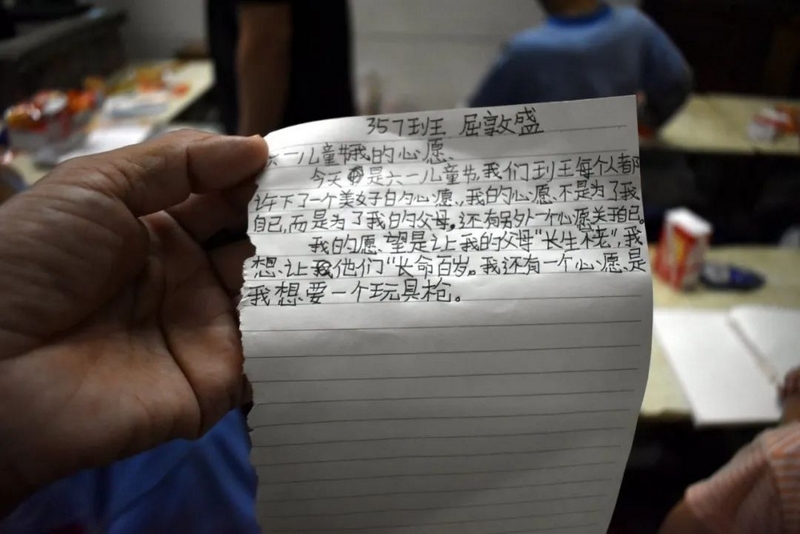 357班 屈敦盛
六一儿童节我的心愿、
今天是六一儿童节,我们班每个人都
许下了一个美好的心愿、我的心愿、不是为了我
自己,而是为了我的父母,还有另外一个心愿关于自己。
我的愿、望是让我的父母“长生不老”,我
想、让他们“长命百岁。我还有一个心愿、是
我想要一个玩具枪。